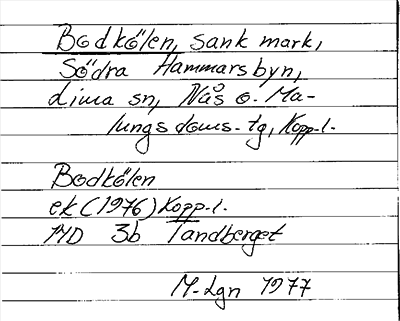 Bodkölen, sank mark,
Södra Hammarsbyn,
Lima sn, Nås o. Ma-
lungs doms. tg, Kopp. l.
Bodkölen
ek (1976) Kopp. l.
13D 3b Tandberget
M-Lgn 1977